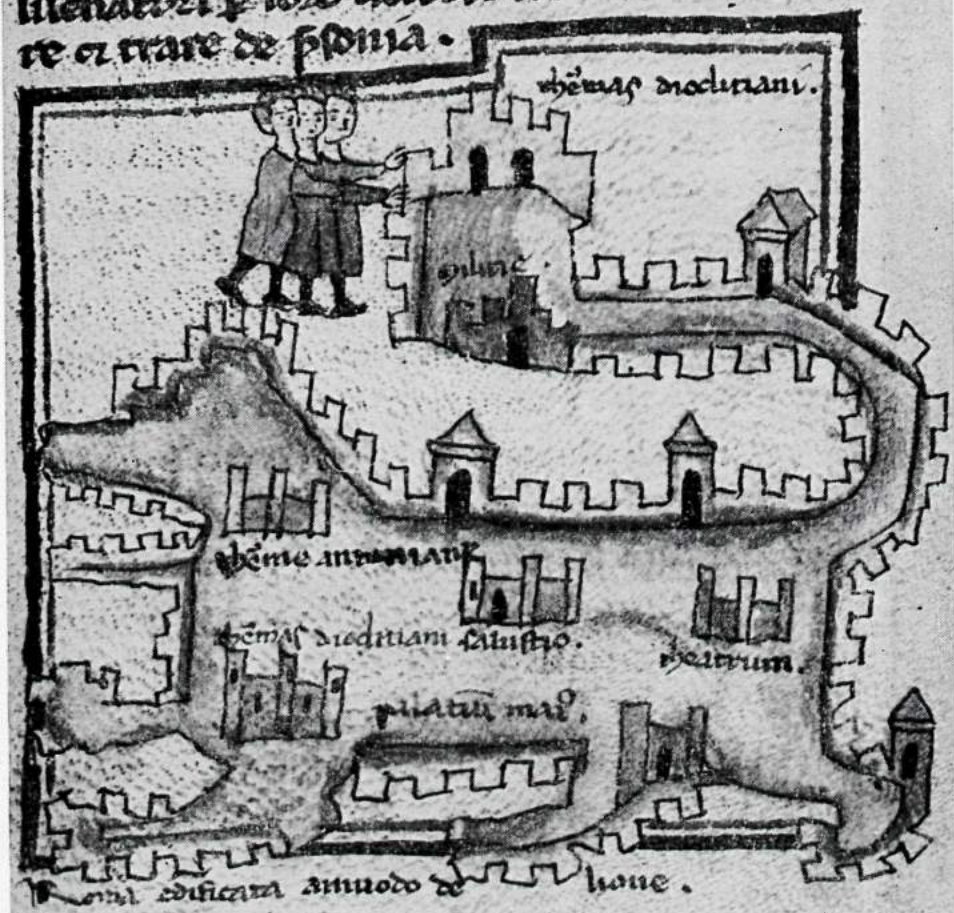 re et trare de p̄sonia.
thēmas dioclitiani.
thēme antoniane
thēmas dioclitiani salustio.
theatrum.
palatiū maiꝰ.
Roma edificata amuodo de lione.